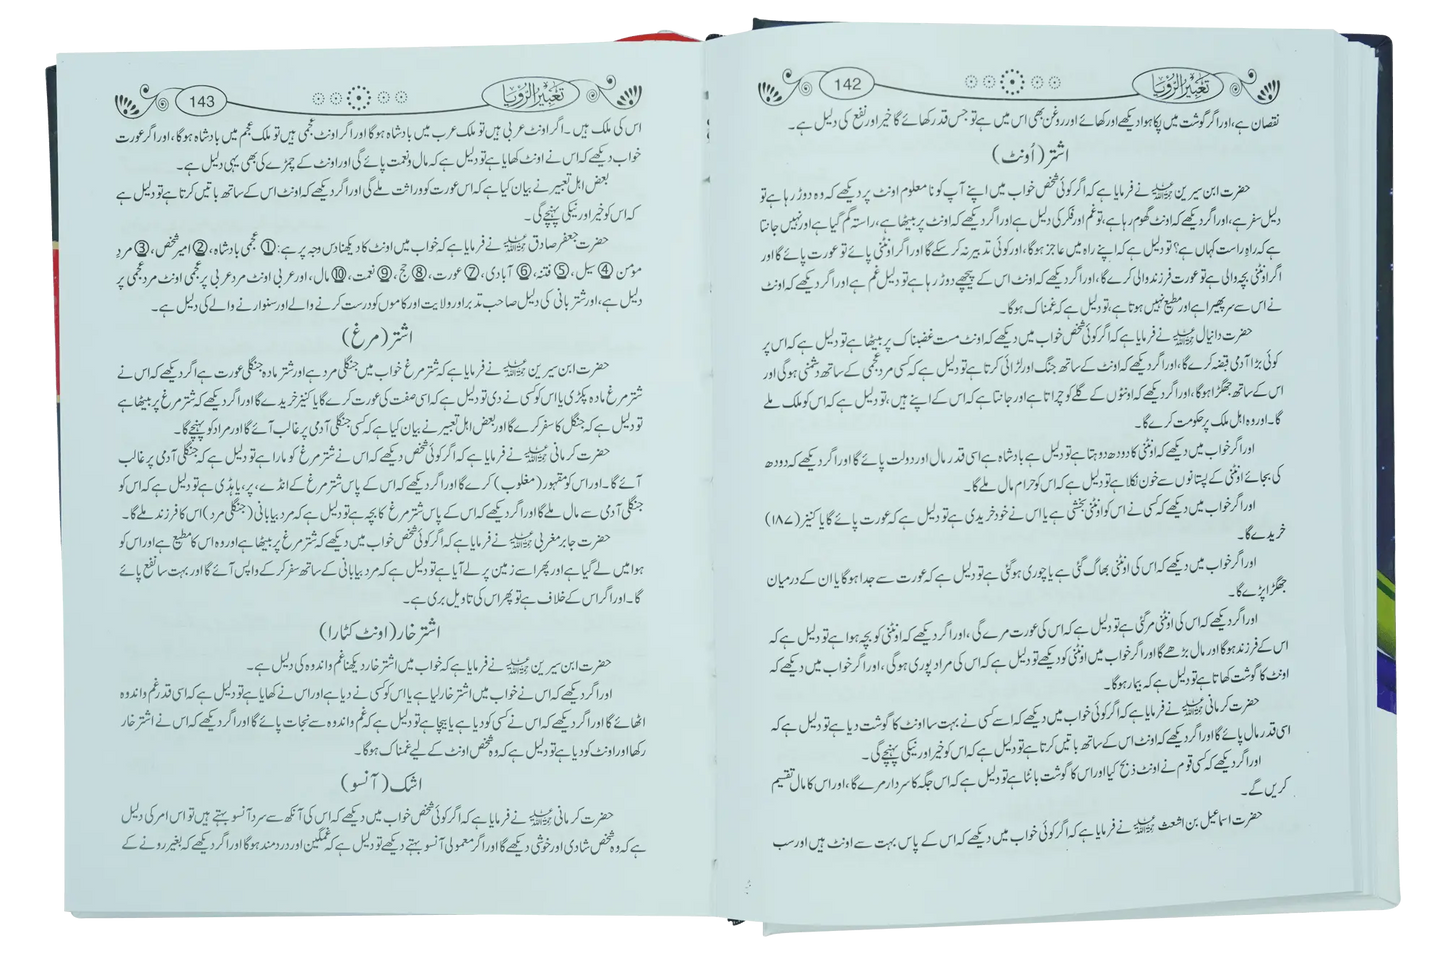 تعبیر الرؤیا
142
نقصان ہے، اور اگر گوشت میں پکا ہوا دیکھے اور کھائے اور روغن بھی اس میں ہے تو جس قدر کھائے گا خیر اور نفع کی دلیل ہے۔
اشتر (اُونٹ)
حضرت ابن سیرین رحمۃ اللہ علیہ نے فرمایا ہے کہ اگر کوئی شخص خواب میں اپنے آپ کو نا معلوم اونٹ پر دیکھے کہ وہ دوڑ رہا ہے تو
دلیل سفر ہے، اور اگر دیکھے کہ اونٹ گھوم رہا ہے، تو غم اور فکر کی دلیل ہے اور اگر دیکھے کہ اونٹ پر بیٹھا ہے، راستہ گم گیا ہے اور نہیں جانتا
ہے کہ راہِ راست کہاں ہے؟ تو دلیل ہے کہ اپنے راہ میں عاجز ہوگا، اور کوئی تدبیر نہ کر سکے گا اور اگر اونٹنی پائے تو عورت پائے گا اور
اگر اونٹنی بچہ والی ہے تو عورت فرزند والی کرے گا، اور اگر دیکھے کہ اونٹ اس کے پیچھے دوڑ رہا ہے تو دلیل غم ہے اور اگر دیکھے کہ اونٹ
نے اس سے سر پھیرا ہے اور مطیع نہیں ہوتا ہے، تو دلیل ہے کہ غمناک ہوگا۔
حضرت دانیال علیہ السلام نے فرمایا ہے کہ اگر کوئی شخص خواب میں دیکھے کہ اونٹ مست غضبناک پر بیٹھا ہے تو دلیل ہے کہ اس پر
کوئی بڑا آدمی قبضہ کرے گا، اور اگر دیکھے کہ اونٹ کے ساتھ جنگ اور لڑائی کرتا ہے تو دلیل ہے کہ کسی مرد عجمی کے ساتھ دشمنی ہوگی اور
اس کے ساتھ جھگڑا ہوگا، اور اگر دیکھے کہ اونٹوں کے گلے کو چراتا ہے اور جانتا ہے کہ اس کے اپنے ہیں، تو دلیل ہے کہ اس کو ملک ملے
گا۔ اور وہ اہل ملک پر حکومت کرے گا۔
اور اگر خواب میں دیکھے کہ اونٹنی کا دودھ دوہتا ہے تو دلیل ہے بادشاہ سے اسی قدر مال اور دولت پائے گا اور اگر دیکھے کہ دودھ
کی بجائے اونٹنی کے پستانوں سے خون نکلا ہے تو دلیل ہے کہ اس کو حرام مال ملے گا۔
اور اگر خواب میں دیکھے کہ کسی نے اس کو اونٹنی بخشی ہے یا اس نے خود خریدی ہے تو دلیل ہے کہ عورت پائے گا یا کنیز (۱۸۷)
خریدے گا۔
اور اگر خواب میں دیکھے کہ اس کی اونٹنی بھاگ گئی ہے یا چوری ہوگئی ہے تو دلیل ہے کہ عورت سے جدا ہوگا یا ان کے درمیان
جھگڑا پڑے گا۔
اور اگر دیکھے کہ اس کی اونٹنی مرگئی ہے تو دلیل ہے کہ اس کی عورت مرے گی، اور اگر دیکھے کہ اونٹنی کو بچہ ہوا ہے تو دلیل ہے کہ
اس کے فرزند ہوگا اور مال بڑھے گا اور اگر خواب میں اونٹنی کو دیکھے تو دلیل ہے کہ اس کی مراد پوری ہوگی، اور اگر خواب میں دیکھے کہ
اونٹ کا گوشت کھاتا ہے تو دلیل ہے کہ بیمار ہوگا۔
حضرت کرمانی رحمۃ اللہ علیہ نے فرمایا ہے کہ اگر کوئی خواب میں دیکھے کہ اسے کسی نے بہت سا اونٹ کا گوشت دیا ہے تو دلیل ہے کہ
اسی قدر مال پائے گا اور اگر دیکھے کہ اونٹ اس کے ساتھ باتیں کرتا ہے تو دلیل ہے کہ اس کو خیر اور نیکی پہنچے گی۔
اور اگر دیکھے کہ کسی قوم نے اونٹ ذبح کیا اور اس کا گوشت بانٹا ہے تو دلیل ہے کہ اس جگہ کا سردار مرے گا، اور اس کا مال تقسیم
کریں گے۔
حضرت اسماعیل بن اشعث رحمۃ اللہ علیہ نے فرمایا ہے کہ اگر کوئی خواب میں دیکھے کہ اس کے پاس بہت سے اونٹ ہیں اور سب
تعبیر الرؤیا
143
اس کی ملک ہیں۔ اگر اونٹ عربی ہیں تو ملک عرب میں بادشاہ ہوگا اور اگر اونٹ عجمی ہیں تو ملک عجم میں بادشاہ ہوگا، اور اگر عورت
خواب دیکھے کہ اس نے اونٹ کھایا ہے تو دلیل ہے کہ مال و نعمت پائے گی اور اونٹ کے چمڑے کی بھی یہی دلیل ہے۔
بعض اہل تعبیر نے بیان کیا ہے کہ اس عورت کو وراثت ملے گی اور اگر دیکھے کہ اونٹ اس کے ساتھ باتیں کرتا ہے تو دلیل ہے
کہ اس کو خیر اور نیکی پہنچے گی۔
حضرت جعفر صادق رحمۃ اللہ علیہ نے فرمایا ہے کہ خواب میں اونٹ کا دیکھنا دس وجہ پر ہے: ① عجمی بادشاہ، ② امیر شخص، ③ مردِ
مؤمن ④ سیل، ⑤ فتنہ، ⑥ آبادی، ⑦ عورت، ⑧ حج، ⑨ نعمت، ⑩ مال، اور عربی اونٹ مرد عربی پر عجمی اونٹ مرد عجمی پر
دلیل ہے، اور شتر بانی کی دلیل صاحب تدبر اور ولایت اور کاموں کو درست کرنے والے اور سنوارنے والے کی دلیل ہے۔
اشتر (مرغ)
حضرت ابن سیرین رحمۃ اللہ علیہ نے فرمایا ہے کہ شتر مرغ خواب میں جنگلی مرد ہے اور شتر مادہ جنگلی عورت ہے اگر دیکھے کہ اس نے
شتر مرغ مادہ پکڑی یا اس کو کسی نے دی تو دلیل ہے کہ اسی صفت کی عورت کرے گا یا کنیز خریدے گا اور اگر دیکھے کہ شتر مرغ پر بیٹھا ہے
تو دلیل ہے کہ جنگل کا سفر کرے گا اور بعض اہل تعبیر نے بیان کیا ہے کہ کسی جنگلی آدمی پر غالب آئے گا اور مراد کو پہنچے گا۔
حضرت کرمانی رحمۃ اللہ علیہ نے فرمایا ہے کہ اگر کوئی شخص دیکھے کہ اس نے شتر مرغ کو مارا ہے تو دلیل ہے کہ جنگلی آدمی پر غالب
آئے گا۔ اور اس کو مقہور (مغلوب) کرے گا اور اگر دیکھے کہ اس کے پاس شتر مرغ کے انڈے، پر، یا ہڈی ہے تو دلیل ہے کہ اس کو
جنگلی آدمی سے مال ملے گا اور اگر دیکھے کہ اس کے پاس شتر مرغ کا بچہ ہے تو دلیل ہے کہ مرد بیابانی (جنگلی مرد) اس کا فرزند ملے گا۔
حضرت جابر مغربی رحمۃ اللہ علیہ نے فرمایا ہے کہ اگر کوئی شخص خواب میں دیکھے کہ شتر مرغ پر بیٹھا ہے اور وہ اس کا مطیع ہے اور اس کو
ہوا میں لے گیا ہے اور پھر اسے زمین پر لے آیا ہے تو دلیل ہے کہ مرد بیابانی کے ساتھ سفر کر کے واپس آئے گا اور بہت سا نفع پائے
گا۔ اور اگر اس کے خلاف ہے تو پھر اس کی تاویل بری ہے۔
اشتر خار (اونٹ کٹارا)
حضرت ابن سیرین رحمۃ اللہ علیہ نے فرمایا ہے کہ خواب میں اشتر خار دیکھنا غم و اندوہ کی دلیل ہے۔
اور اگر دیکھے کہ اس نے خواب میں اشتر خار لیا ہے یا اس کو کسی نے دیا ہے اور اس نے کھایا ہے تو دلیل ہے کہ اسی قدر غم و اندوہ
اٹھائے گا اور اگر دیکھے کہ اس نے کسی کو دیا ہے یا بیچا ہے تو دلیل ہے کہ غم و اندوہ سے نجات پائے گا اور اگر دیکھے کہ اس نے اشتر خار
رکھا اور اونٹ کو دیا ہے تو دلیل ہے کہ وہ شخص اونٹ کے لیے غمناک ہوگا۔
اشک (آنسو)
حضرت کرمانی رحمۃ اللہ علیہ نے فرمایا ہے کہ اگر کوئی شخص خواب میں دیکھے کہ اس کی آنکھ سے سرد آنسو بہتے ہیں تو اس امر کی دلیل
ہے کہ وہ شخص شادی اور خوشی دیکھے گا اور اگر معمولی آنسو بہتے دیکھے تو دلیل ہے کہ غمگین اور درد مند ہوگا اور اگر دیکھے کہ بغیر رونے کے